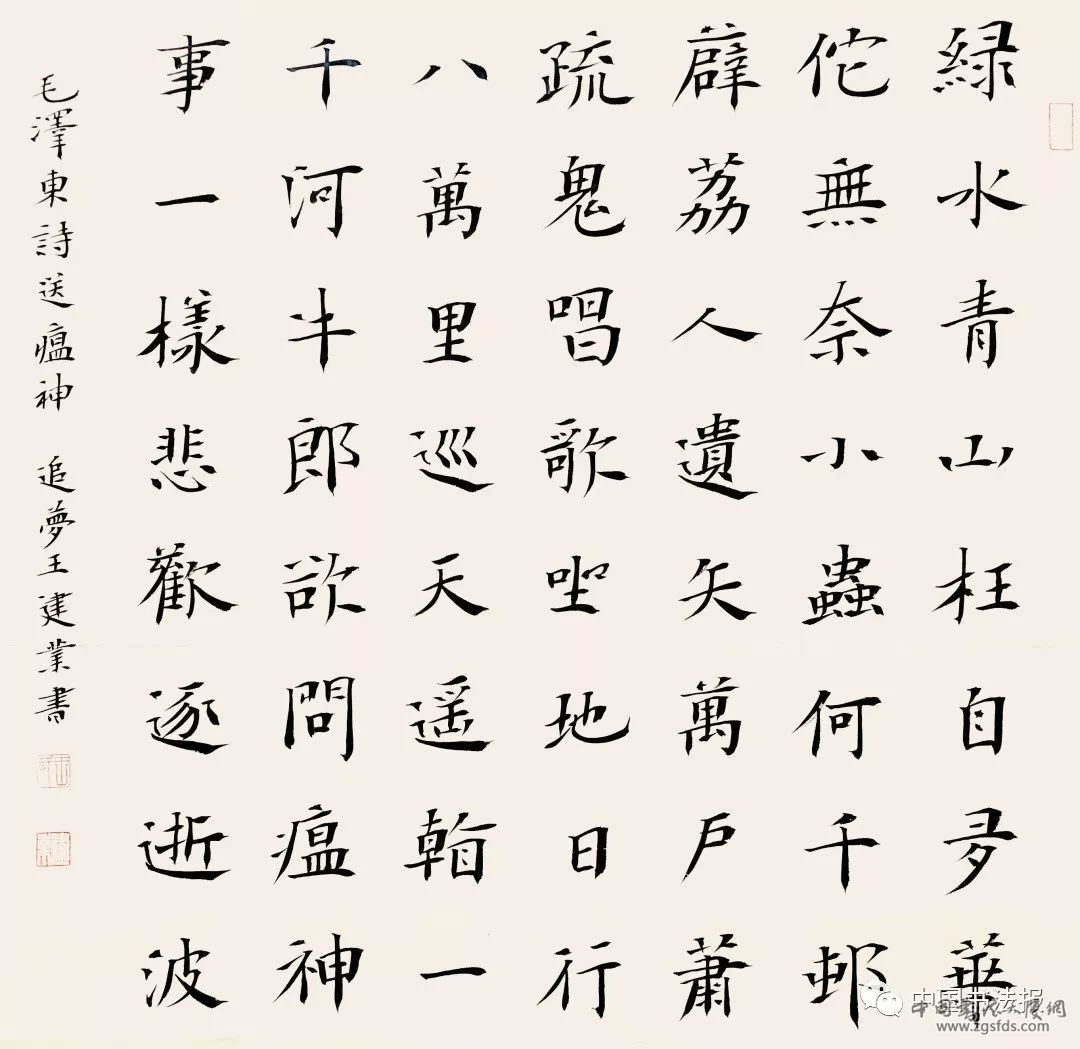 緑水青山枉自多華
佗無奈小蟲何千邨
薜荔人遺矢萬戶蕭
疏鬼唱歌坐地日行
八萬里巡天遥看一
千河牛郎欲問瘟神
事一樣悲歡逐逝波
毛澤東詩送瘟神 追夢王建業書
中国书法报
www.zgsfds.com